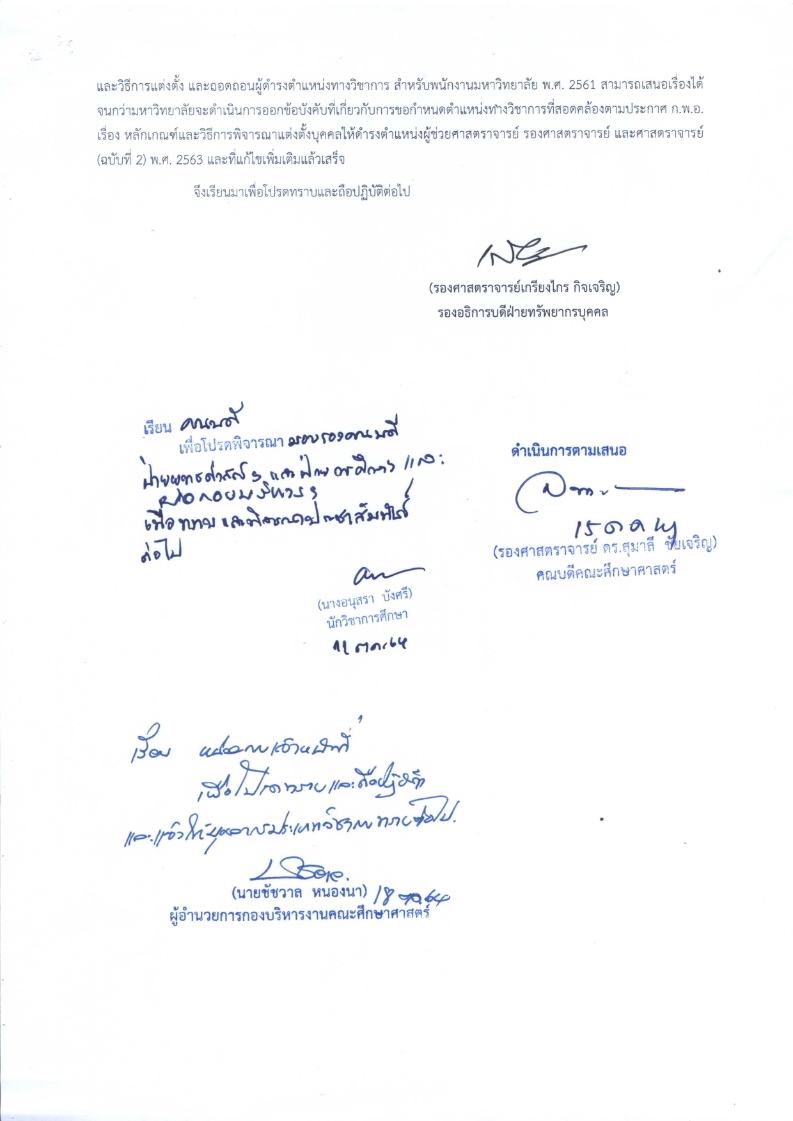 และวิธีการแต่งตั้ง และถอดถอนผู้ดำรงตำแหน่งทางวิชาการ สำหรับพนักงานมหาวิทยาลัย พ.ศ. 2561 สามารถเสนอเรื่องได้
จนกว่ามหาวิทยาลัยจะดำเนินการออกข้อบังคับที่เกี่ยวกับการขอกำหนดตำแหน่งทางวิชาการที่สอดคล้องตามประกาศ ก.พ.อ.
เรื่อง หลักเกณฑ์และวิธีการพิจารณาแต่งตั้งบุคคลให้ดำรงตำแหน่งผู้ช่วยศาสตราจารย์ รองศาสตราจารย์ และศาสตราจารย์
(ฉบับที่ 2) พ.ศ. 2563 และที่แก้ไขเพิ่มเติมแล้วเสร็จ
จึงเรียนมาเพื่อโปรดทราบและถือปฏิบัติต่อไป
(รองศาสตราจารย์เกรียงไกร กิจเจริญ)
รองอธิการบดีฝ่ายทรัพยากรบุคคล
เรียน คณบดี
เพื่อโปรดพิจารณา มอบรองคณบดี
ฝ่ายยุทธศาสตร์ฯ และฝ่าย และ
เพื่อทราบและพิจารณาประชาสัมพันธ์
ต่อไป
(นางอนุสรา บังศรี)
นักวิชาการศึกษา
ตค.64
ดำเนินการตามเสนอ
15 ตค
(รองศาสตราจารย์ ดร.สุมาลี ชัยเจริญ)
คณบดีคณะศึกษาศาสตร์
เรียน
เพื่อโปรดทราบและถือปฏิบัติ
และแจ้งให้บุคลากรประเภทวิชาการทราบต่อไป.
(นายชัชวาล หนองนา) 18 ตค 64
ผู้อำนวยการกองบริหารงานคณะศึกษาศาสตร์